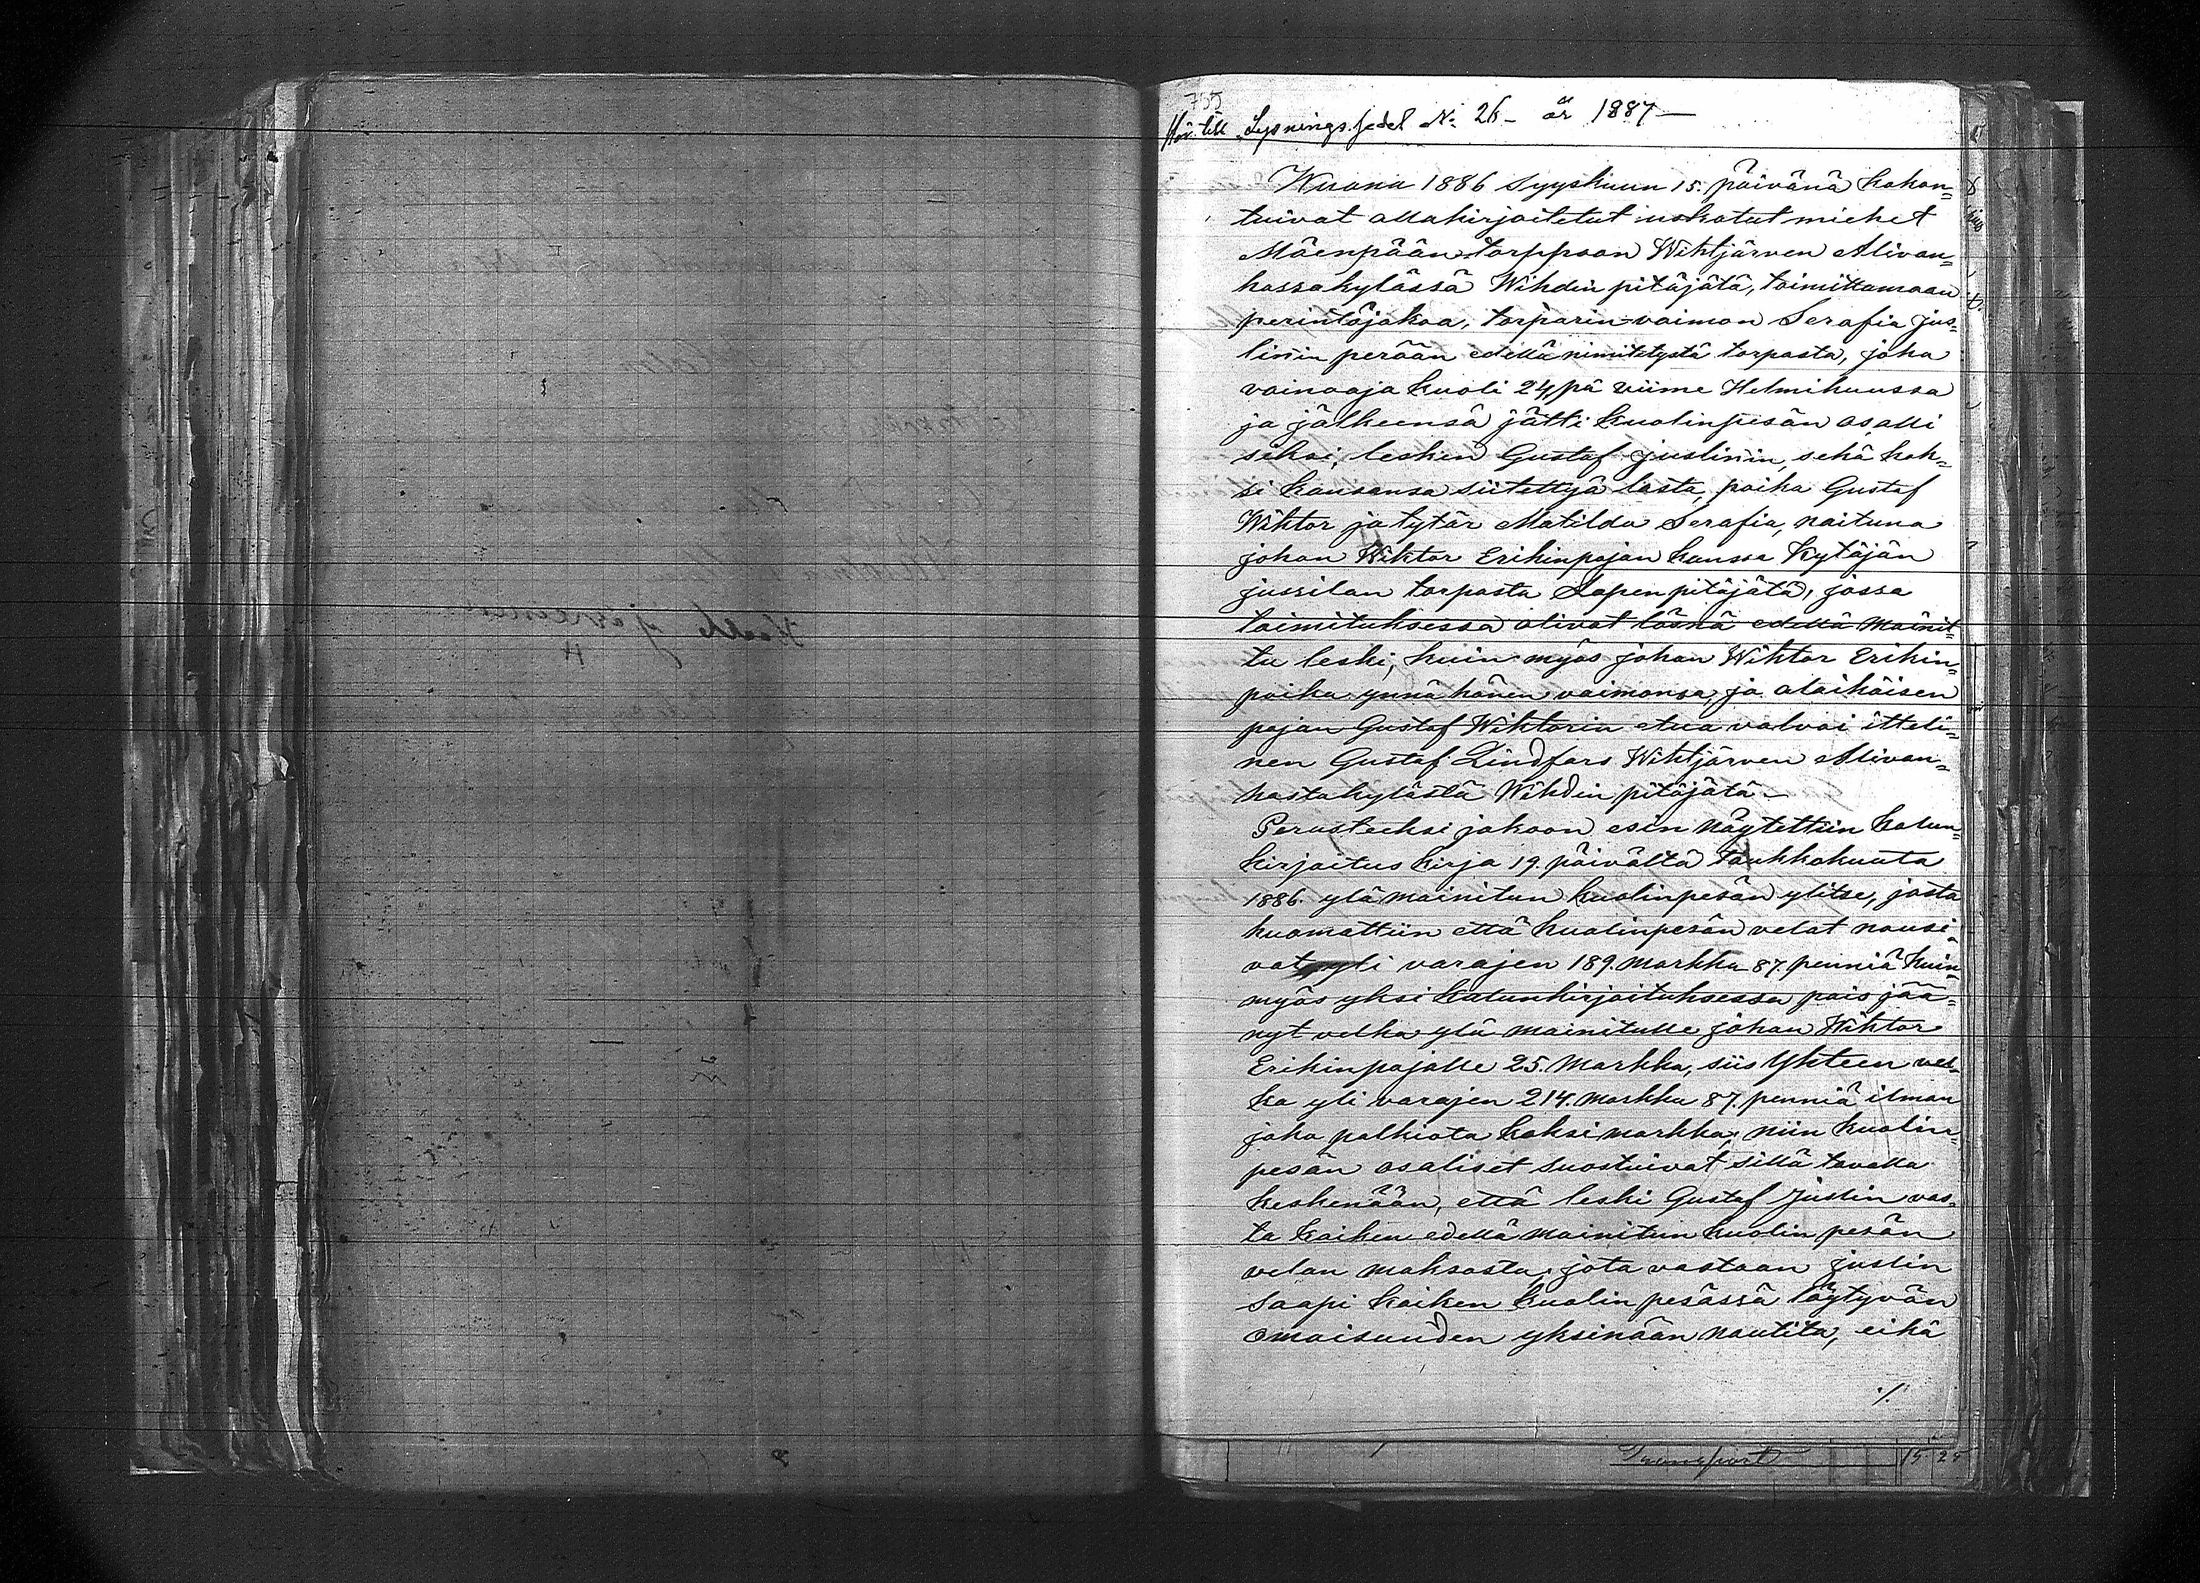 755
Hör till Lysnings sedel No 26 - år 1887 —
Wuona 1886 Syyskuun 15. päivänä kokon=
tuivat allakirjoitetut uskotut miehet
Mäenpään torppaan Wihtjärven Alivan=
hassakylässä Wihdin pitäjätä, toimittamaan
perintöjakoa, torparin vaimon Serafia jus=
linin perään edellä nimitetystä torpasta, joka
vainaaja kuoli 24 pä viime Helmikuussa
ja jälkeensä jätti kuolinpesän osalli
siksi, lesken Gustaf juslinin, sekä kak=
si kanssansa siitettyä lasta, poika Gustaf
Wihtor ja tytär Matilda Serafia, naituna
johan Wihtor Erikinpojan kanssa Kytäjän
jussilan torpasta Lopen pitäjätä, jossa
toimituksessa olivat läsnä edellä mainit=
tu leski, kuin myös johan Wihtor Erikin=
poika ynnä hänen vaimonsa, ja alaikäisen
pojan Gustaf Wihtorin etua valvoi ittelli=
nen Gustaf Lindfors Wihtjärven Alivan=
hastakylästä Wihdin pitäjätä —
Perusteeksi jakoon esin näytettiin kalun=
kirjoitus kirja 19. päivältä toukkokuuta
1886. ylä mainitun kuolinpesän ylitse, josta
huomattiin että kuolinpesän velat nousi=
vat yli varajen 189. markka 87. penniä kuin
myös yksi kalunkirjoituksessa pois jää=
nyt velka ylä mainitulle johan Wihtor
Erikinpojalle 25. Markka, siis Yhteen vel=
ka yli varajen 214. markka 87. penniä ilman
jako palkiota kaksi markka, niin kuolin=
pesän osaliset suostuivat sillä tavalla
keskenään, että leski Gustaf Juslin vas=
ta kaiken edellä mainitun kuolin pesän
velan maksosta, jota vastaan juslin
saapi kaiken kuolin pesässä löytyvän
omaisuuden yksinään nautita, eikä
./.
Transport 15 25